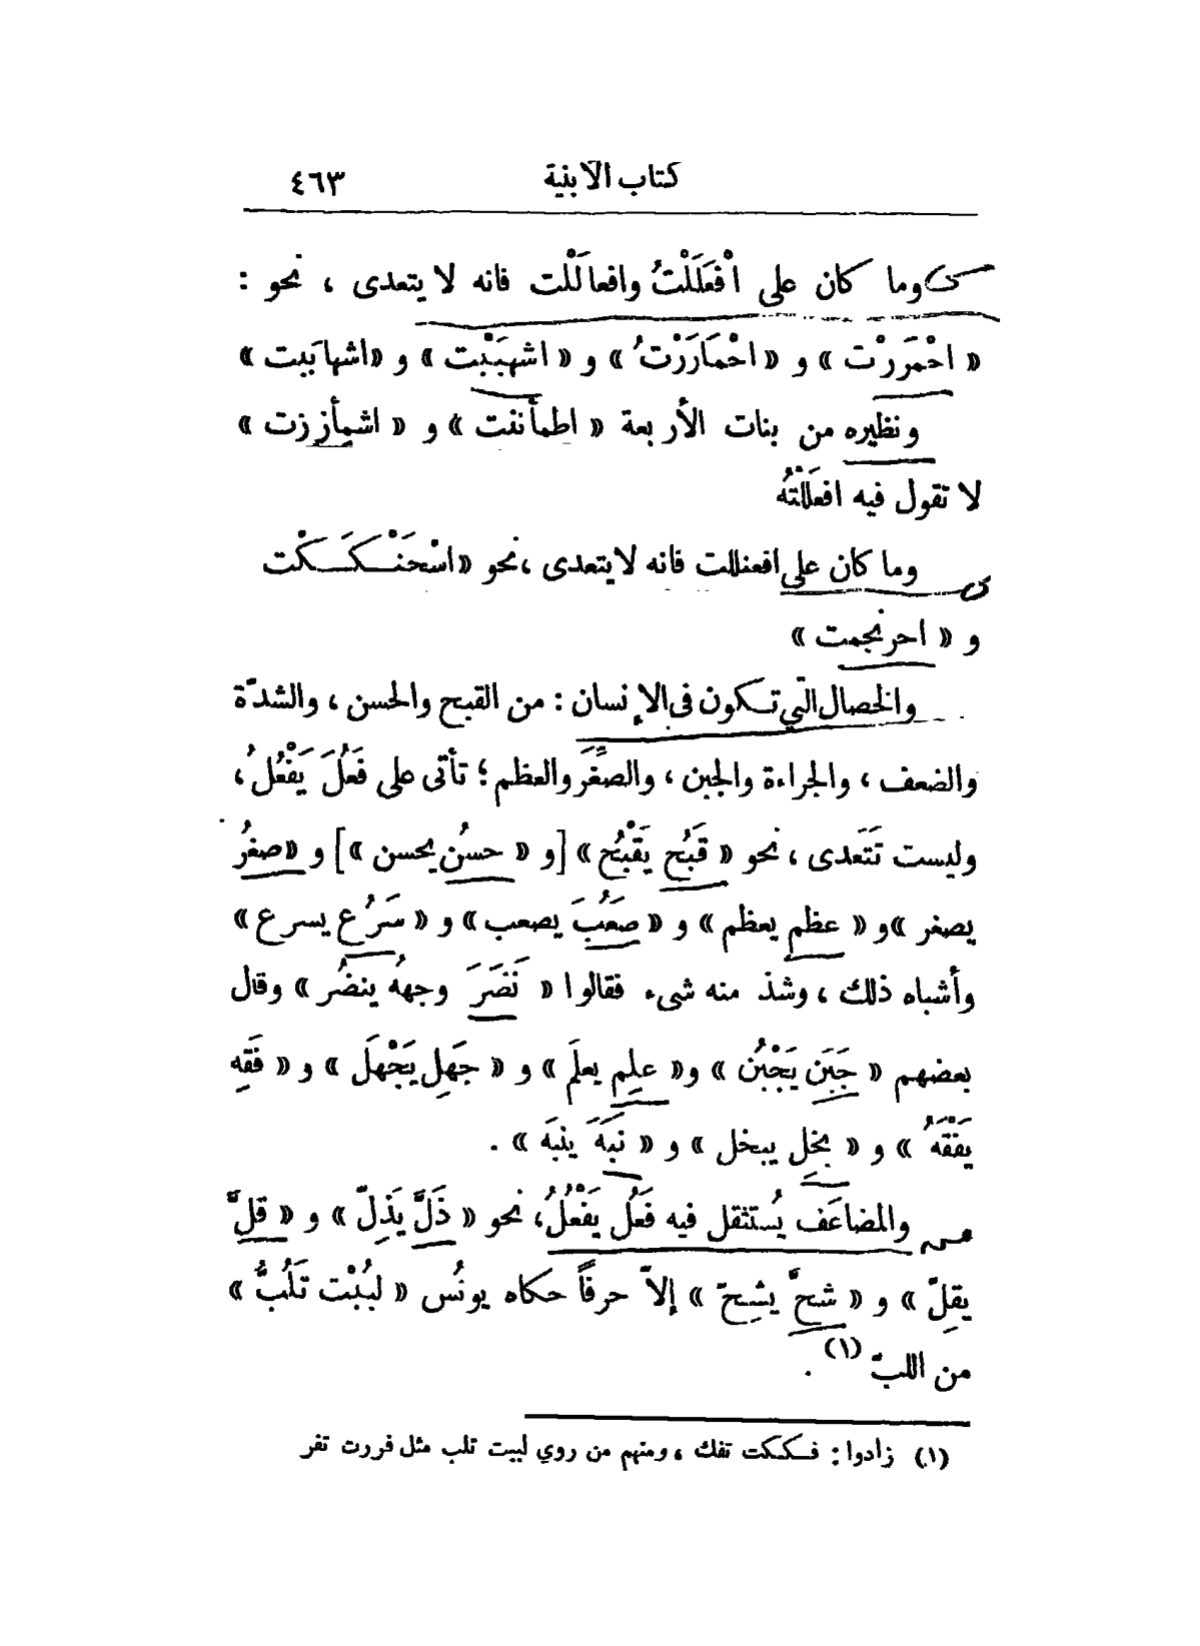 كتاب الأبنية ٤٦٣
وما كان على افْعَلَلْتُ وافعالَلْت فانه لا يتعدى ، نحو :
« احْمَرَرْت » و « احْمَارَرْتُ » و « اشهَبَبْت » و «اشهابَبت »
ونظيره من بنات الأربعة « اطمأننت » و « اشمأززت »
لا تقول فيه افعَلَلْتُه
وما كان على افعنللت فانه لا يتعدى ، نحو «اسْحَنْكَكْت
و « احرنجمت »
والخصال التي تكون فى الإنسان : من القبح والحسن ، والشدّة
والضعف ، والجراءة والجبن ، والصِّغَر والعظم ؛ تأتى على فَعُلَ يَفْعُلُ ،
وليست تَتَعدى ، نحو « قَبُح يَقْبُح » [و « حسُن يحسن »] و «صغُر
يصغر »و « عظم يعظم » و « صَعُبَ يصعب » و « سَرُع يسرع »
وأشباه ذلك ، وشذ منه شىء فقالوا « نَضَرَ وجههُ ينضُر » وقال
بعضهم « جَبَن يَجْبُن » و« علِم يعلَم » و « جَهِل يَجْهَل » و « فَقِه
يَفْقَهُ » و « بخل يبخل » و « نَبَهَ ينبَه » .
والمضاعَف يُستثقل فيه فَعُل يَفْعُلُ، نحو « ذَلَّ يَذِلّ » و « قلَّ
يقِلّ » و « شحَّ يشِحّ » إلاّ حرفاً حكاه يونُس « لَبُبْت تَلُبُّ »
من اللبّ (١) .
(١) زادوا : فككت تفك ، ومنهم من روي لببت تلب مثل فررت تفر